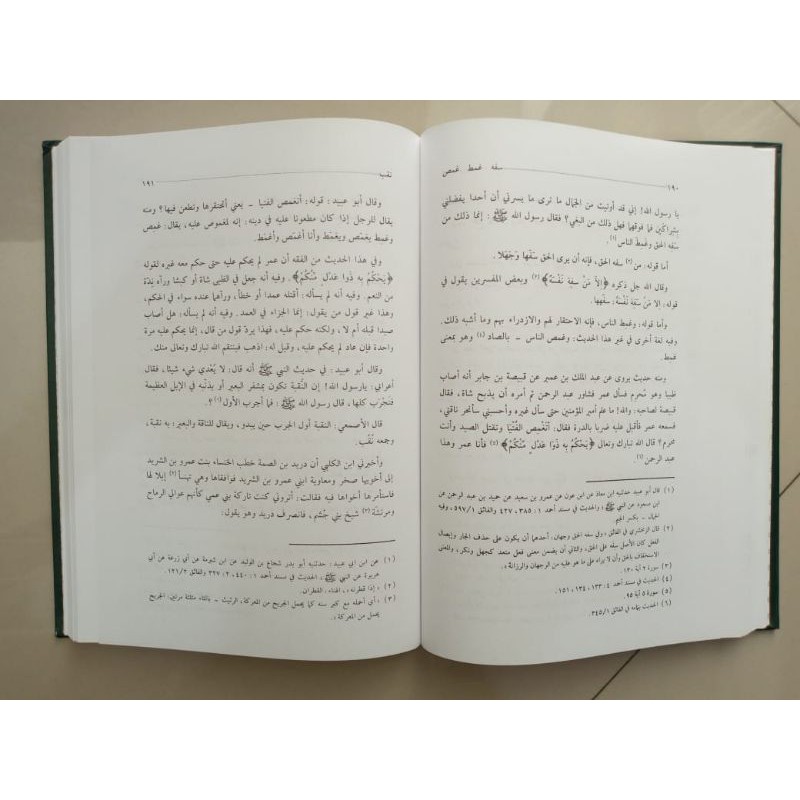 ١٩٠ سفه غمط غمص
يا رسول الله! إني قد أوتيت من الجمال ما ترى ما يسرني أن أحدا يفضلني
بشراكين فما فوقهما فهل ذلك من البغي؟ فقال رسول الله ﷺ: إنما ذلك من
سفه الحق وغمط الناس(١).
أما قوله: من (٢) سفه الحق، فإنه أن يرى الحق سَفَها وَجَهلا.
وقال الله جل ذكره ﴿إِلَّا مَنْ سَفِهَ نَفْسَهُ﴾(٣) وبعض المفسرين يقول في
قوله: إلا مَنْ سَفِهَ نَفْسَهُ: سفّهها.
وأما قوله: وغمط الناس، فإنه الاحتقار لهم والازدراء بهم وما أشبه ذلك.
وفيه لغة أخرى في غير هذا الحديث: وغمص الناس - بالصاد (٤) وهو بمعنى
غمط.
ومنه حديث يروى عن عبد الملك بن عمير عن قبيصة بن جابر أنه أصاب
ظبيا وهو مُحرِم فسأل عمر فشاور عبد الرحمن ثم أمره أن يذبح شاة، فقال
قبيصة لصاحبه: والله! ما علم أمير المؤمنين حتى سأل غيره وأحسبني سأنحر ناقتي،
فسمعه عمر فأقبل عليه ضربا بالدرة فقال: أتَغْمِص الفُتْيَا وتقتل الصيد وأنت
محرم؟ قال الله تبارك وتعالى ﴿يَحْكُمُ بِهِ ذَوَا عَدْلٍ مِنْكُمْ﴾(٥) فأنا عمر وهذا
عبد الرحمن(٦).
(١) قال أبو عبيد حدثنيه ابن معاذ عن ابن عون عن عمرو بن سعيد عن حميد بن عبد الرحمن عن
ابن مسعود عن النبي ﷺ؛ والحديث في مسند أحمد ١: ٣٨٥، ٤٢٧ والفائق ٥٩٧/١، وفيه
بكسر الجيم.
(٢) قال الزمخشري في الفائق: وفي سفه الحق وجهان: أحدهما أن يكون على حذف الجار وإيصال
الفعل كان الأصل سفه على الحق، والثاني أن يضمن معنى فعل متعد كجهل ونكر، والمعنى
الاستخفاف بالحق وأن لا يراه على ما هو عليه من الرجحان والرزانة».
(٣) سورة ٢ آية ١٣٠.
(٤) الحديث في مسند أحمد ٤: ١٣٣، ١٣٤، ١٥١.
(٥) سورة ٥ آية ٩٥.
(٦) الحديث بتمامه في الفائق ٣٤٥/١.
نقب ١٩١
وقال أبو عبيد: قوله: أتَغمِص الفتيا - يعني أتحتقرها وتطعن فيها؟ ومنه
يقال للرجل إذا كان مطعونا عليه في دينه: إنه لمغموص عليه، يقال: غمِص
وغمِط يغمَص ويغمَط وأنا أغمَص وأغمَط.
وفي هذا الحديث من الفقه أن عمر لم يحكم عليه حتى حكم معه غيره لقوله
﴿يَحْكُمُ بِهِ ذَوَا عَدْلٍ مِّنْكُمْ﴾. وفيه أنه جعل في الظبي شاة أو كبشا ورآه نِدّة
من النعم. وفيه أنه لم يسأله: أقتله عمدا أو خطأ، ورآهما عنده سواء في الحكم،
وهذا غير قول من يقول: إنما الجزاء في العمد. وفيه أنه لم يسأله: هل أصاب
صيدا قبله أم لا، ولكنه حكم عليه، فهذا يردّ قول من قال، إنما يحكم عليه مرة
واحدة فإن عاد لم يحكم عليه، وقيل له: اذهب فينتقم الله تبارك وتعالى منك.
وقال أبو عبيد: في حديث النبي ﷺ أنه قال: لا يُعْدِي شيء شيئا، فقال
أعرابي: يارسول الله! إن النُقبة تكون بمشفر البعير أو بذنبه في الإبل العظيمة
فتَجْرَب كلها، قال رسول الله ﷺ: فما أجرب الأول (١)؟.
قال الأصمعي: النقبة أول الجرب حين يبدو، ويقال للناقة والبعير: به نقبة،
وجمعه نُقْب.
وأخبرني ابن الكلبي أن دريد بن الصمة خطب الخنساء بنت عمرو بن الشريد
إلى أخويها صخر ومعاوية ابني عمرو بن الشريد فوافقاها وهي تهنأ (٢) إبلا لها
فاستأمرها أخواها فيه فقالت: أتروني كنت تاركة بني عمي كأنهم عوالي الرماح
ومرتثة (٣) شيخ بني جُشَم، فانصرف دريد وهو يقول:
(١) عن ابن ابي عبيد: حدثنيه أبو بدر شجاع بن الوليد عن ابن شبرمة عن أبي زرعة عن أبي
هريرة عن النبي ﷺ، الحديث في مسند أحمد ١: ٤٤٠، ٢: ٣٢٧ والفائق ١٢١/٣.
(٢) ، الهناء: القطران.
(٣) ، أي أحمله مع كبر سنه كما يحمل الجريح من المعركة، الرتيث - بالثاء مثلثة مرتين. الجريح
يحمل من المعركة،